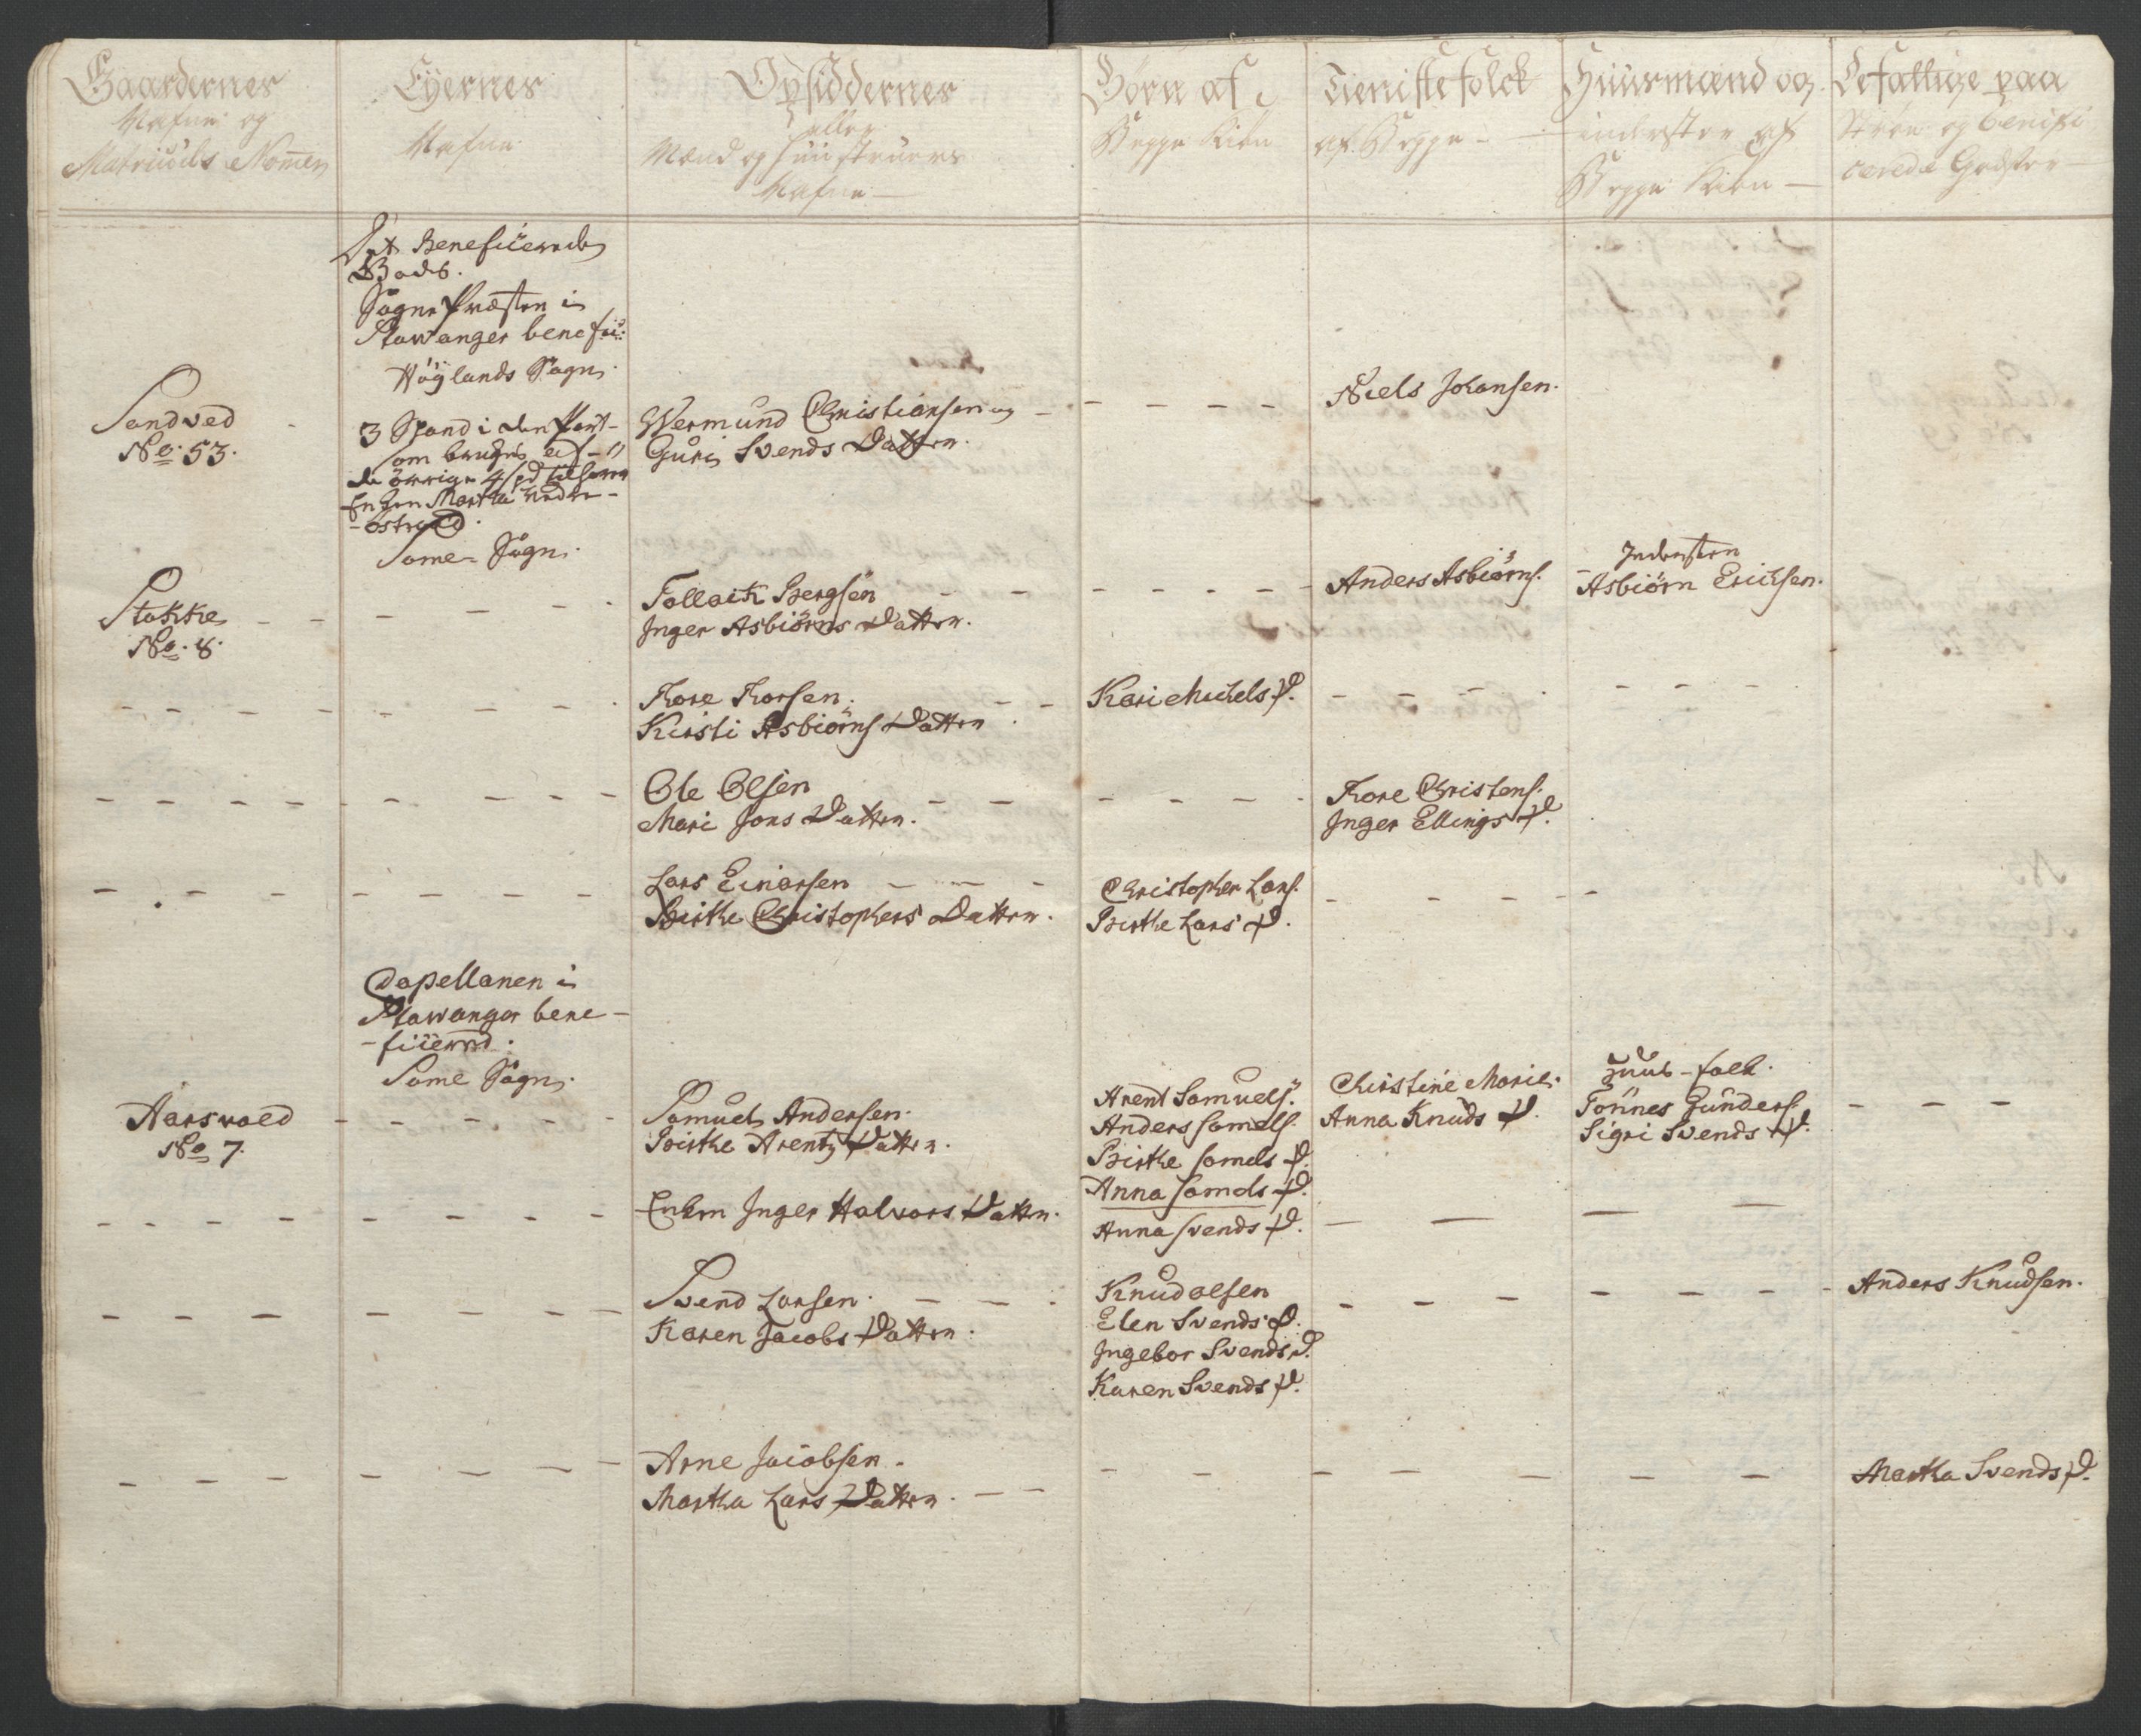 Gaardernes
Nafne og
Matriculs Nomen
Eyernes
Nafne
Opsiddernes
eller
Mænd og Huustruers
Nafne
Börn af
Begge Kiön
Tieniste folck
af Begge
Huusmænd og
inderster af
Begge Kiön
Befattige paa
og benifi
cerede Godster
Det Beneficerede
Gods.
Sogne Præsten i
Stawanger benefici:
Höylands Sogn.
Sandved
No. 53.
3 Spand i den
som bruges af
de övrige 4 spd tilhörer
Enken Martha Nedre-
-östraad.
Wermund Christiansen og
Guri Svends Datter.
Niels Johansen.
Same Sogn.
Stokke
No. 8.
Tollack Bergsen
Inger Asbiörns Datter.
Anders Asbiörns.
Indersten
Asbiörn Ericksen.
Tore Torsen.
Kirsti Asbiörns Datter
Kari Michels D.
Ole Olsen
Mari Jons Datter.
Tore Christens.
Inger Ellings D.
Lars Einarsen
Birthe Christophers Datter.
Christopher Lars.
Birthe Lars D.
Capellanen i
Stawanger bene-
-ficeered.
Same Sogn.
Aarsvold
No 7.
Samuel Andersen.
Birthe Arentz Datter.
Arent Samuels.
Anders Samels.
Birthe Samels D.
Anna Samels D.
Christine Marie.
Anna Knuds D.
Huus-folk.
Tönnes Gunders.
Sigri Svends D.
Enken Inger Halvors Datter.
Anna Svends D.
Svend Larsen.
Karen Jacobs Datter.
Knud Olsen
Elen Svends D.
Ingebor Svends D.
Karen Svends D.
Anders Knudsen.
Arne Jacobsen.
Martha Lars Datter.
Martha Svends D.